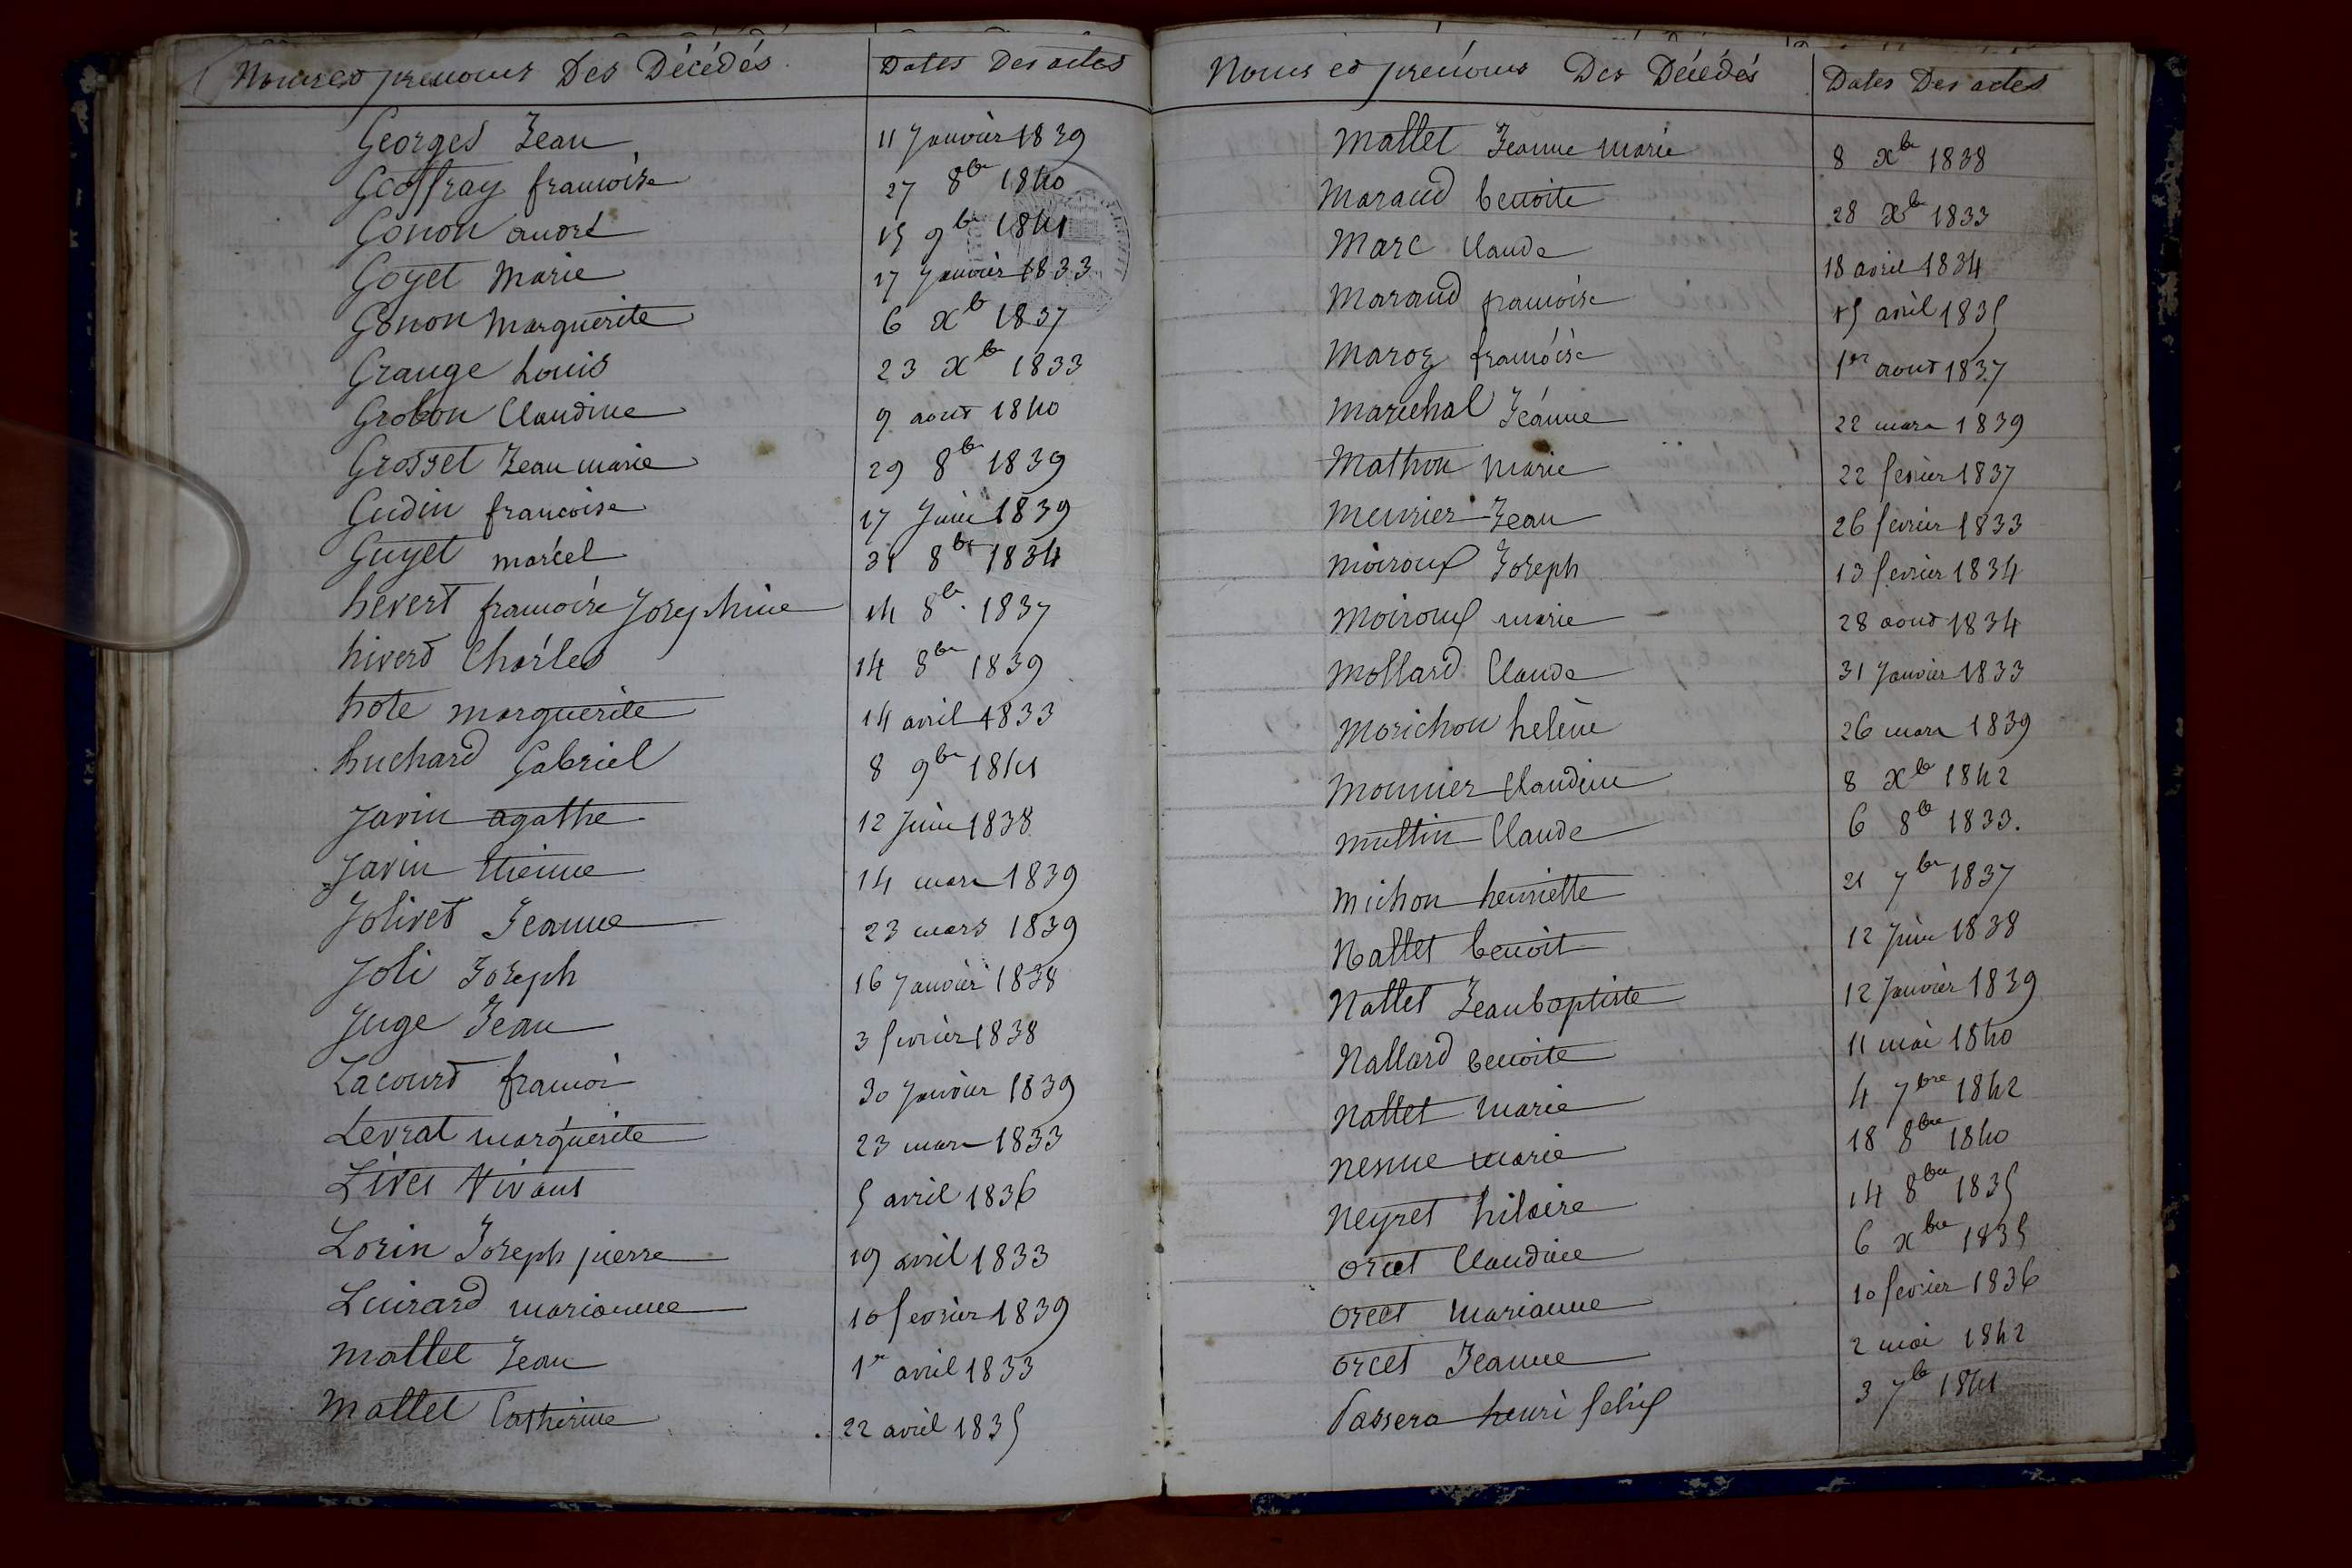 Noms et prenoms Des Décédés Dates Des actes
Georges Jean 11 Janvier 1839
Geoffray francoise 27 8bre 1840
Gonon andré 15 9bre 1841
Goyet Marie 17 Janvier 1833
Gonon Marguerite 6 xbre 1837
Grange Louis 23 xbre 1833
Grobon Claudine 9 aout 1840
Grosset Jean marie 29 8bre 1839
Gudin francoise 17 Juin 1839
Guyet marcel 31 8bre 1834
hevert francoise Josephine 14 8bre 1837
hivert Charles 14 8bre 1839
hote marguerite 14 avril 1833
huchard Gabriel 8 9bre 1841
Javin agathe 12 Juin 1838
Javin Etienne 14 mars 1839
Jolivet Jeanne 23 mars 1839
Joli Joseph 16 Janvier 1838
Juge Jean 3 fevrier 1838
Lacourt francois 30 Janvier 1839
Levrat marguerite 23 mars 1833
Livet Vivant 5 avril 1836
Lorin Joseph pierre 19 avril 1833
Luirard marianne 10 fevrier 1839
Mallet Jean 1er avril 1833
Mallet Catherine 22 avril 1835
Noms et prenoms Des Décédés Dates Des actes
Mallet Jeanne Marie 8 xbre 1838
Maraud benoite 28 xbre 1833
Marc Claude 18 avril 1834
Maraud francoise 15 avril 1835
Maroz francoise 1er aout 1837
Marechal Jeanne 22 mars 1839
Mathon Marie 22 fevrier 1837
Meurier Jean 26 fevrier 1833
Moiroux Joseph 13 fevrier 1834
Moiroux marie 28 aout 1834
Mollard Claude 31 Janvier 1833
Morichon helène 26 mars 1839
Monnier Claudine 8 xbre 1842
Muttin Claude 6 8bre 1833.
Michon henriette 21 7bre 1837
Nallet benoit 12 Juin 1838
Nallet Jean baptiste 12 Janvier 1839
Nallard benoite 11 mai 1840
Nallet Marie 4 7bre 1842
Nesme Marie 18 8bre 1840
Neyret hilaire 14 8bre 1835
Orcet Claudine 6 xbre 1835
Orcet Marianne 10 fevrier 1836
Orcet Jeanne 2 mai 1842
Passera henri felix 3 7bre 1841